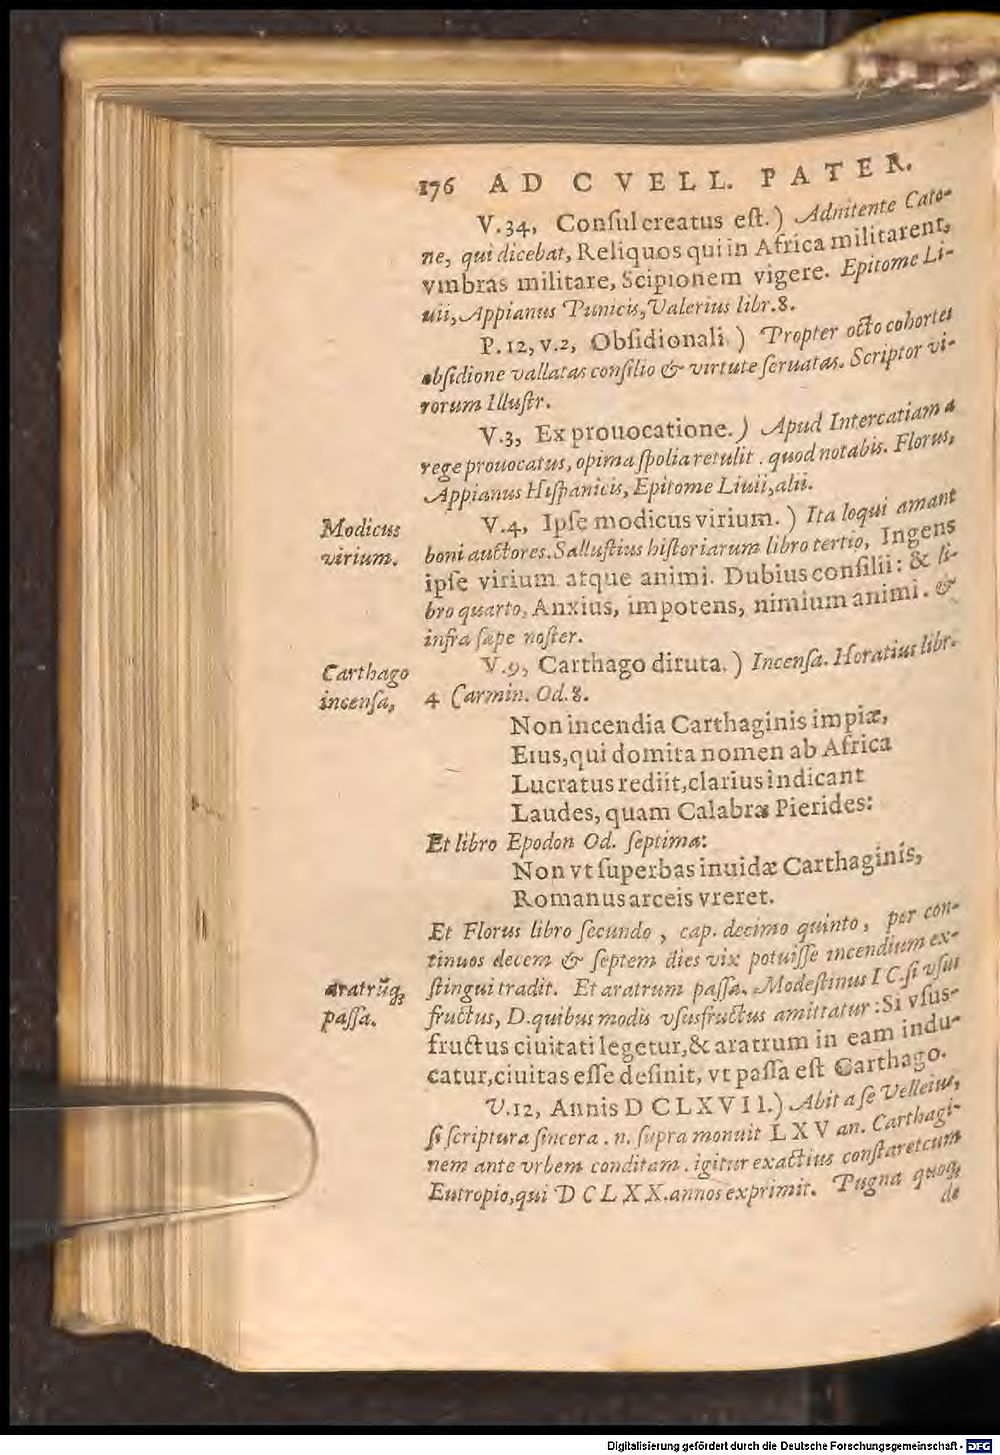 176 AD C VELL. PATER.
V.34, Conſul creatus eſt.) Adnitente Cato-
ne, qui dicebat, Reliquos qui in Africa militarent,
vmbras militare, Scipionem vigere. Epitome Li-
uii, Appianus Punicis, Valerius libr.8.
P.12, v.2, Obſidionali.) Propter octo cohortes
obſidione vallatas conſilio & virtute ſeruatas. Scriptor vi-
rorum Illuſtr.
V.3, Ex prouocatione.) Apud Intercatiam a
rege prouocatus, opima ſpolia retulit. quod notabis. Florus,
Appianus Hiſpanicis, Epitome Liuii, alii.
Modicus
virium.
V.4, Ipſe modicus virium.) Ita loqui amant
boni auctores. Salluſtius hiſtoriarum libro tertio, Ingens
ipſe virium atque animi. Dubius conſilii: & li-
bro quarto, Anxius, impotens, nimium animi. &
infra ſæpe noſter.
Carthago
incenſa,
V.9, Carthago diruta.) Incenſa. Horatius libr.
4 Carmin. Od.8.
Non incendia Carthaginis impiæ,
Eius, qui domita nomen ab Africa
Lucratus rediit, clarius indicant
Laudes, quam Calabræ Pierides:
Et libro Epodon Od. ſeptima:
Non vt ſuperbas inuidæ Carthaginis,
Romanus arceis vreret.
Et Florus libro ſecundo, cap. decimo quinto, per con-
tinuos decem & ſeptem dies vix potuiſſe incendium ex-
aratrūq;
paſſa.
ſtingui tradit. Et aratrum paſſa. Modeſtinus I C. ſi vſus
fructus, D. quibus modis vſusfructus amittatur: Si vſus-
fructus ciuitati legetur, & aratrum in eam indu-
catur, ciuitas eſſe deſinit, vt paſſa eſt Carthago.
V.12, Annis D C L X V I I.) Abit a ſe Velleius,
ſi ſcriptura ſincera. n. ſupra monuit L X V an. Carthagi-
nem ante vrbem conditam. igitur exactius conſtaret cum
Eutropio, qui D C L X X. annos exprimit. Pugna quoq;
de
Digitalisierung gefördert durch die Deutsche Forschungsgemeinschaft - DFG